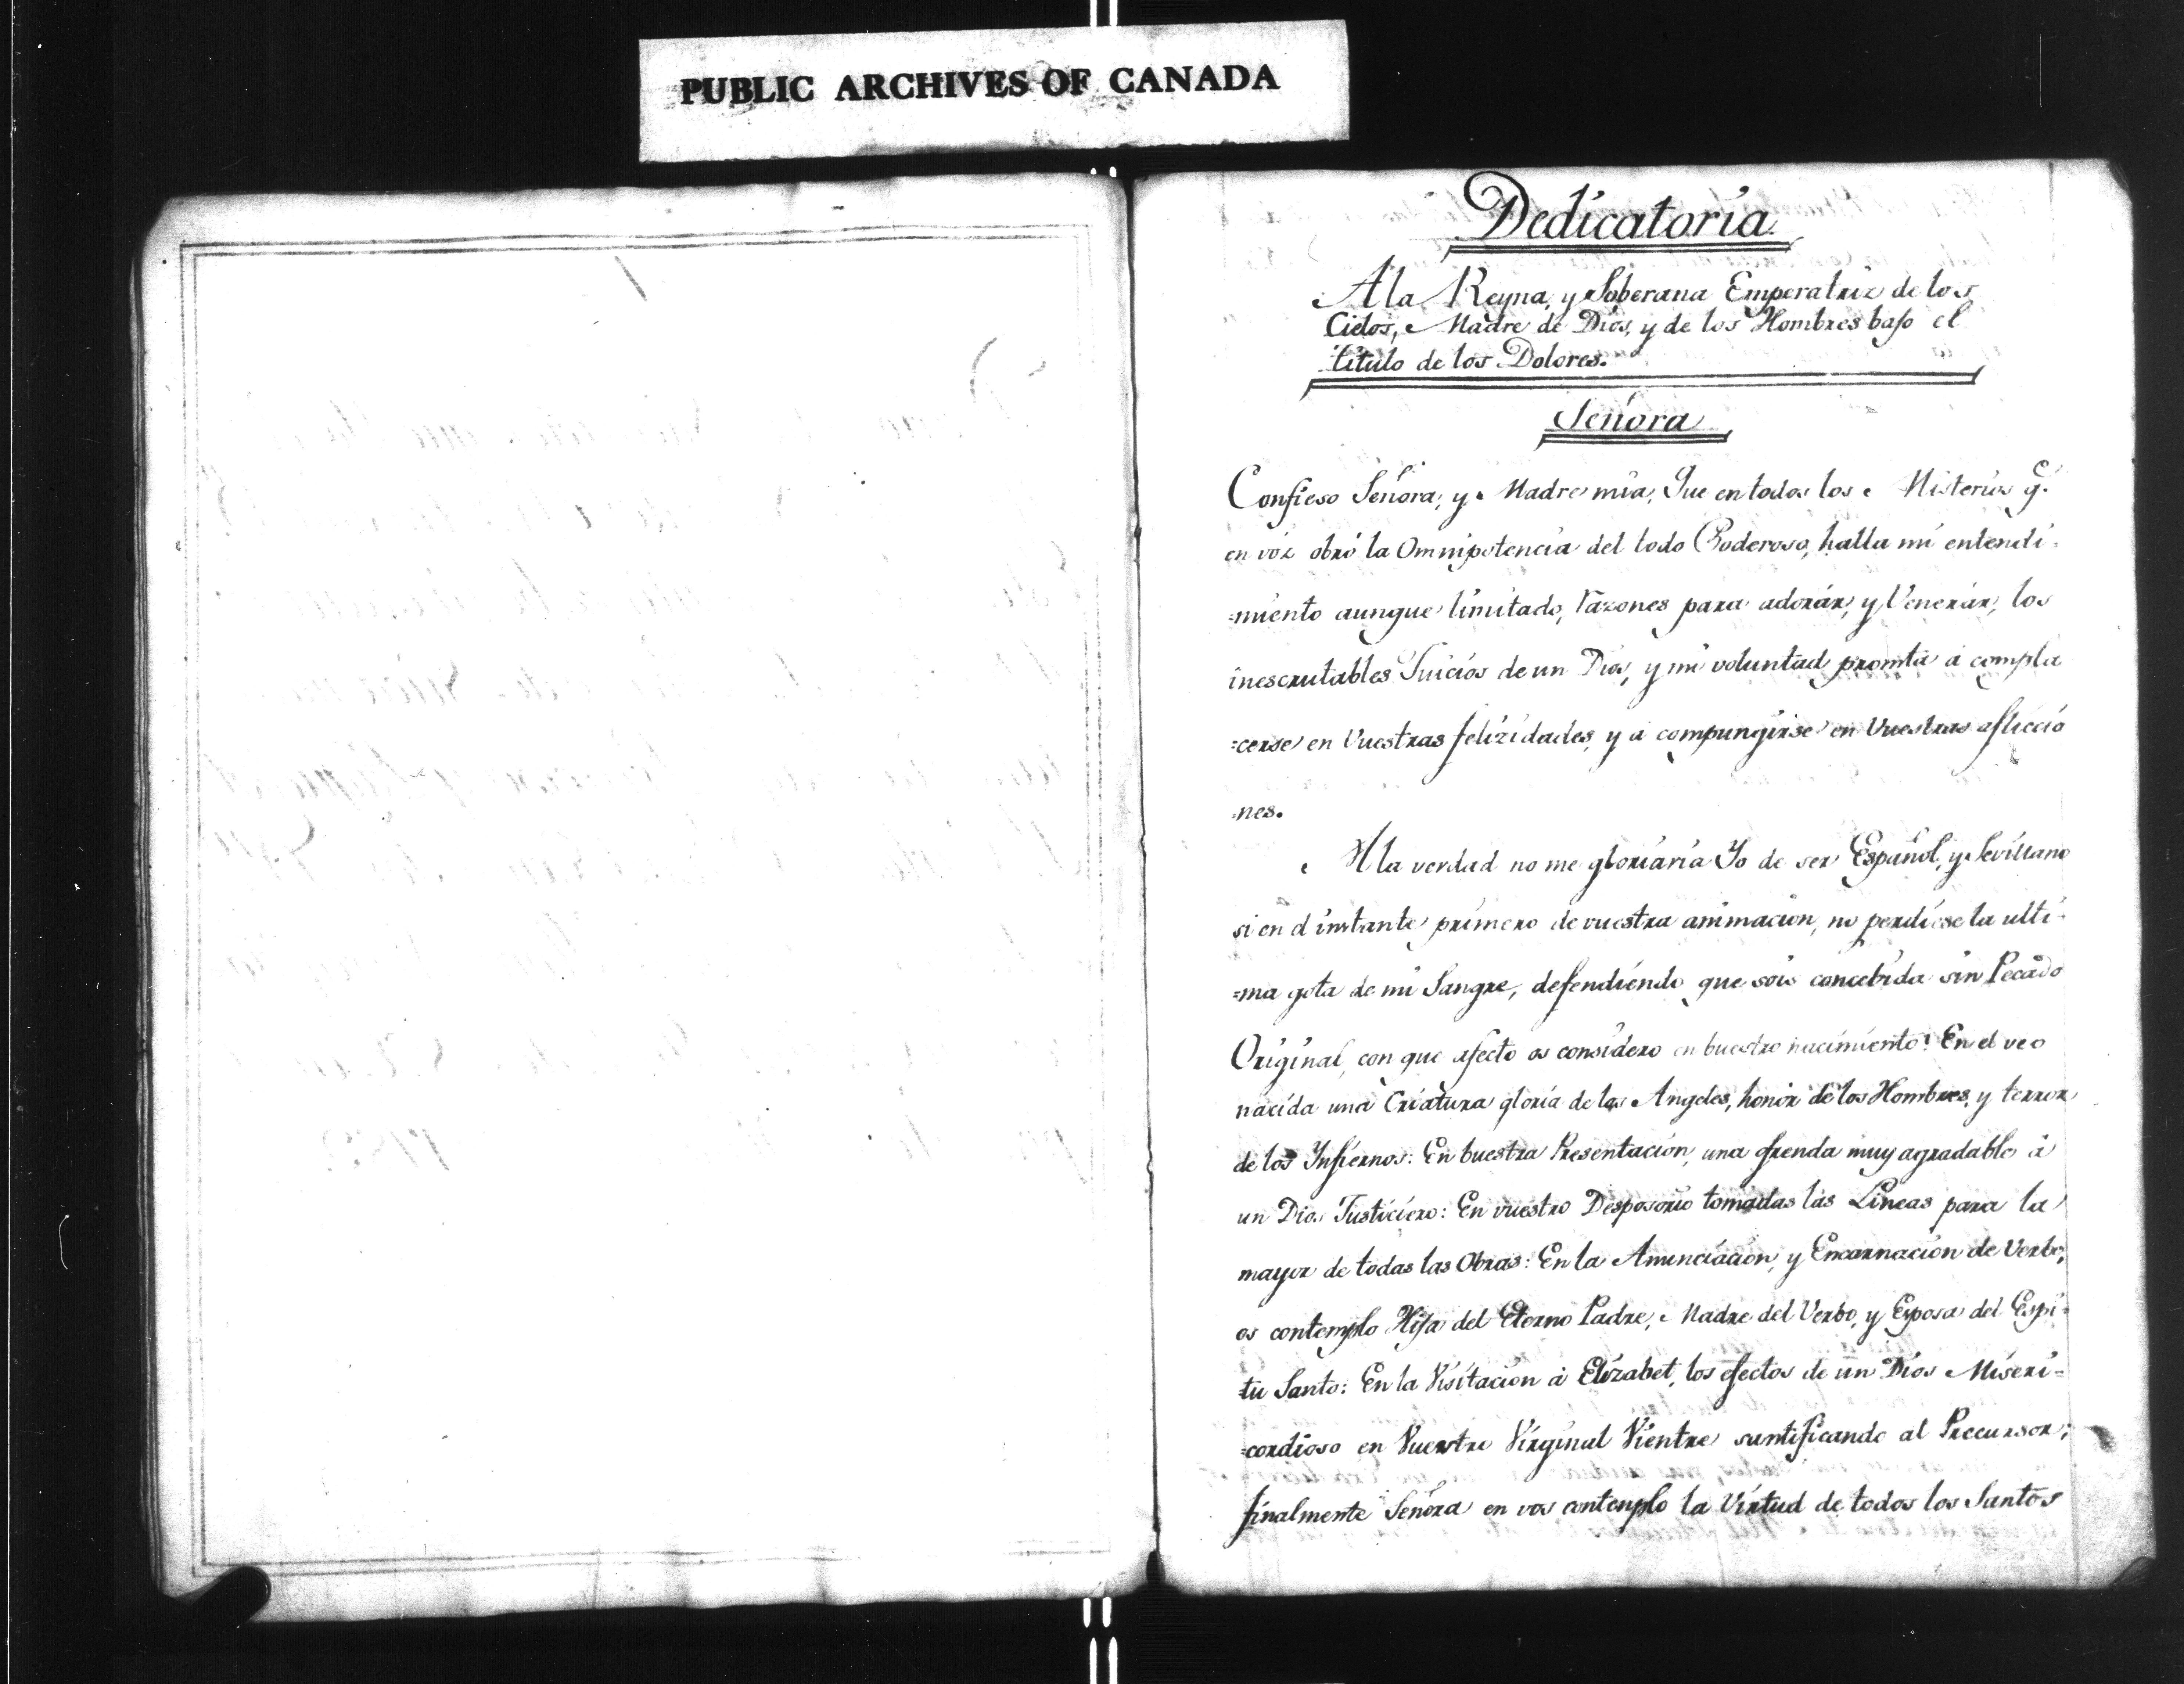 PUBLIC ARCHIVES OF CANADA
Dedicatoria
A la Reyna, y Soberana Emperatriz de los
Cielos, Madre de Dios, y de los Hombres bajo el
titulo de los Dolores.
Señora
Confieso Señora, y Madre mia, Que en todos los Misterios q.e
en vóz obró la Omnipotencia del todo Poderoso, halla mi entendi-
=miento aunque limitado, razones para adorár, y Venerár, los
inescrutables Juicios de un Dios, y mi voluntad promta á compla
=cerse en Vuestras felizidades, y á compungirse en Vuestras afliccio
=nes.
A la verdad no me gloriaria Yo de ser Español, y Sevillano
si en el instante primero de vuestra animacion, no perdiese la ulti-
=ma gota de mi Sangre, defendiendo que sois concebida sin Pecado
Original, con que afecto os considero en buestro nacimiento! En el veo
nacida una Criatura gloria de los Angeles, honór de los Hombres, y terror
de los Infiernos: En buestra Presentacion, una ofrenda muy agradable á
un Dios Justiciero: En vuestro Desposorio tomadas las Lineas para la
mayor de todas las Obras: En la Anunciacion, y Encarnacion de Verbo,
os contemplo Hija del Eterno Padre, Madre del Verbo, y Esposa del Espi=
tu Santo: En la Visitacion á Elizabet, los efectos de un Dios Miseri=
=cordioso en Vuestro Virginal Vientre santificando al Precursor;
finalmente Señora en vos contemplo la Virtud de todos los Santos